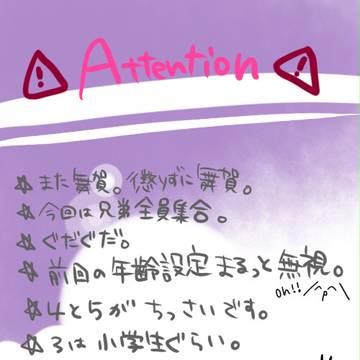 Attention
☆また舞賀。懲りずに舞賀。
☆今回は兄弟全員集合。
☆ぐだぐだ。
☆前回の年齢設定まるっと無視。
oh!! /^p^\
☆4と5がちっさいです。
☆3は小学生ぐらい。